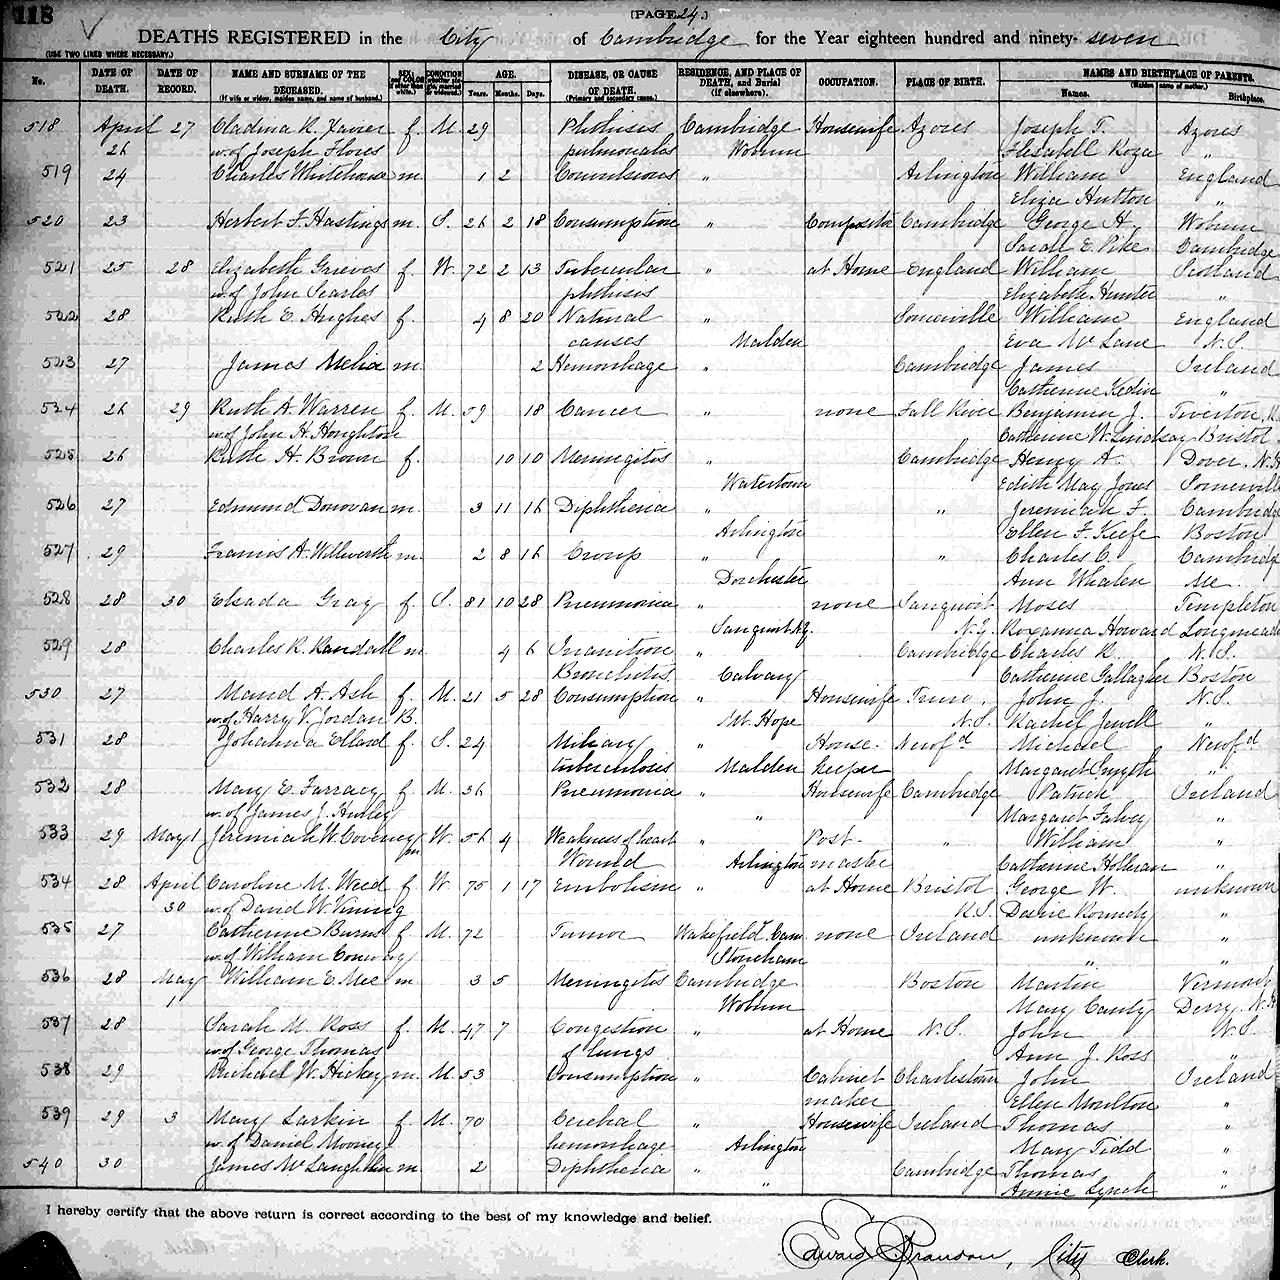 118
[PAGE 24.]
DEATHS REGISTERED in the City of Cambridge for the Year eighteen hundred and ninety-seven
(USE TWO LINES WHERE NECESSARY.)
No. DATE OF DEATH. DATE OF RECORD. NAME AND SURNAME OF THE DECEASED. (If wife or widow, maiden name, and name of husband.) SEX, and COLOR if other than white.) CONDITION whether single, married or widowed.) AGE. Years. Months. Days. DISEASE, OR CAUSE OF DEATH. (Primary and secondary cause.) RESIDENCE, AND PLACE OF DEATH, and Burial (if elsewhere). OCCUPATION. PLACE OF BIRTH. NAMES AND BIRTHPLACE OF PARENTS. (Maiden name of mother.) Names. Birthplace.
518 April 27 Cladina R. Xavier f. M. 29 Phthisis Cambridge Housewife Azores Joseph T. Azores
26 w. of Joseph Flores pulmonalis Woburn Elisabell Roza "
519 24 Charles Whitehouse m. 1 2 Convulsions " Arlington William England
Eliza Hutton "
520 23 Herbert F. Hastings m. S. 26 2 18 Consumption " Compositor Cambridge George H. Woburn
Sarah E. Pike Cambridge
521 25 28 Elizabeth Grieves f. W. 72 2 13 Tubercular " at Home England William Scotland
w. of John Searles phthisis Elizabeth Hunter "
522 28 Ruth E. Hughes f. 4 8 20 Natural " Somerville William England
causes Malden Eva McLane N.S.
523 27 James Melia m. 2 Hemorrhage " Cambridge James Ireland
Catherine "
524 26 29 Ruth A. Warren f. M. 59 18 Cancer " none Fall River Benjamin J. Tiverton,
w. of John H. Houghton Catherine W. Lindsay Bristol
525 26 Ruth H. Brown f. 10 10 Meningitis " Cambridge Henry A. Dover, N.H
Watertown Edith May Jones Somerville
526 27 Edmund Donovan m. 3 11 16 Diphtheria " " Jeremiah F. Cambridge
Arlington Ellen F. Keefe Boston
527 29 Francis A. Willworth m. 2 8 16 Croup " " Charles C. Cambridge
Dorchester Ann Whalen Me.
528 28 30 Elsada Gray f. S. 81 10 28 Pneumonia " none Sauquoit Moses Templeton
Sauquoit N.Y. N.Y. Roxanna Howard Longmeadow
529 28 Charles R. Randall m. 4 6 Inanition " Cambridge Charles R. N.S.
Bronchitis Calvary Catherine Gallagher Boston
530 27 Maud A. Ash f. M. 21 5 28 Consumption " Housewife Truro, John J. N.S.
w. of Harry V. Jordan B. Mt. Hope N.S. Rachel Jewell "
531 28 Johanna Ellard f. S. 24 Miliary " House- Newfd Michael Newfd
tuberculosis Malden keeper Margaret Smyth "
532 28 Mary E. Farracy f. M. 36 Pneumonia " Housewife Cambridge Patrick Ireland
w. of James J. Hurley " Margaret Falvey "
533 29 May 1 Jeremiah W. Coveney m W. 56 4 Weakness of heart Post- " William "
Wound Arlington master Catherine Holleran "
534 28 April Caroline M. Weed f. W. 75 1 17 Embolism " at Home Bristol George W. unknown
30 w. of David W. Vining R.I. Desire Roundy "
535 27 Catherine Burns f. M. 72 Tumor Wakefield Cam. none Ireland unknown "
w. of William Conway Stoneham " "
536 28 May William E. Mee m 3 5 Meningitis Cambridge Boston Martin Vermont
1 Woburn Mary Canty Derry, N.H
537 28 Sarah M. Ross f. M. 47 7 Congestion " at Home N.S. John N.S.
w. of George Thomas of lungs Ann J. Ross "
538 29 Michael W. Hickey m. M. 53 Consumption " Cabinet Charlestown John Ireland
maker Ellen Moulton "
539 29 3 Mary Larkin f. M. 70 Cerebral " Housewife Ireland Thomas "
w. of Daniel Mooney hemorrhage Arlington Mary Tidd "
540 30 James McLaughlin m. 2 Diphtheria " Cambridge Thomas "
" Annie Lynch "
I hereby certify that the above return is correct according to the best of my knowledge and belief.
Edward J. Brandon, City Clerk.